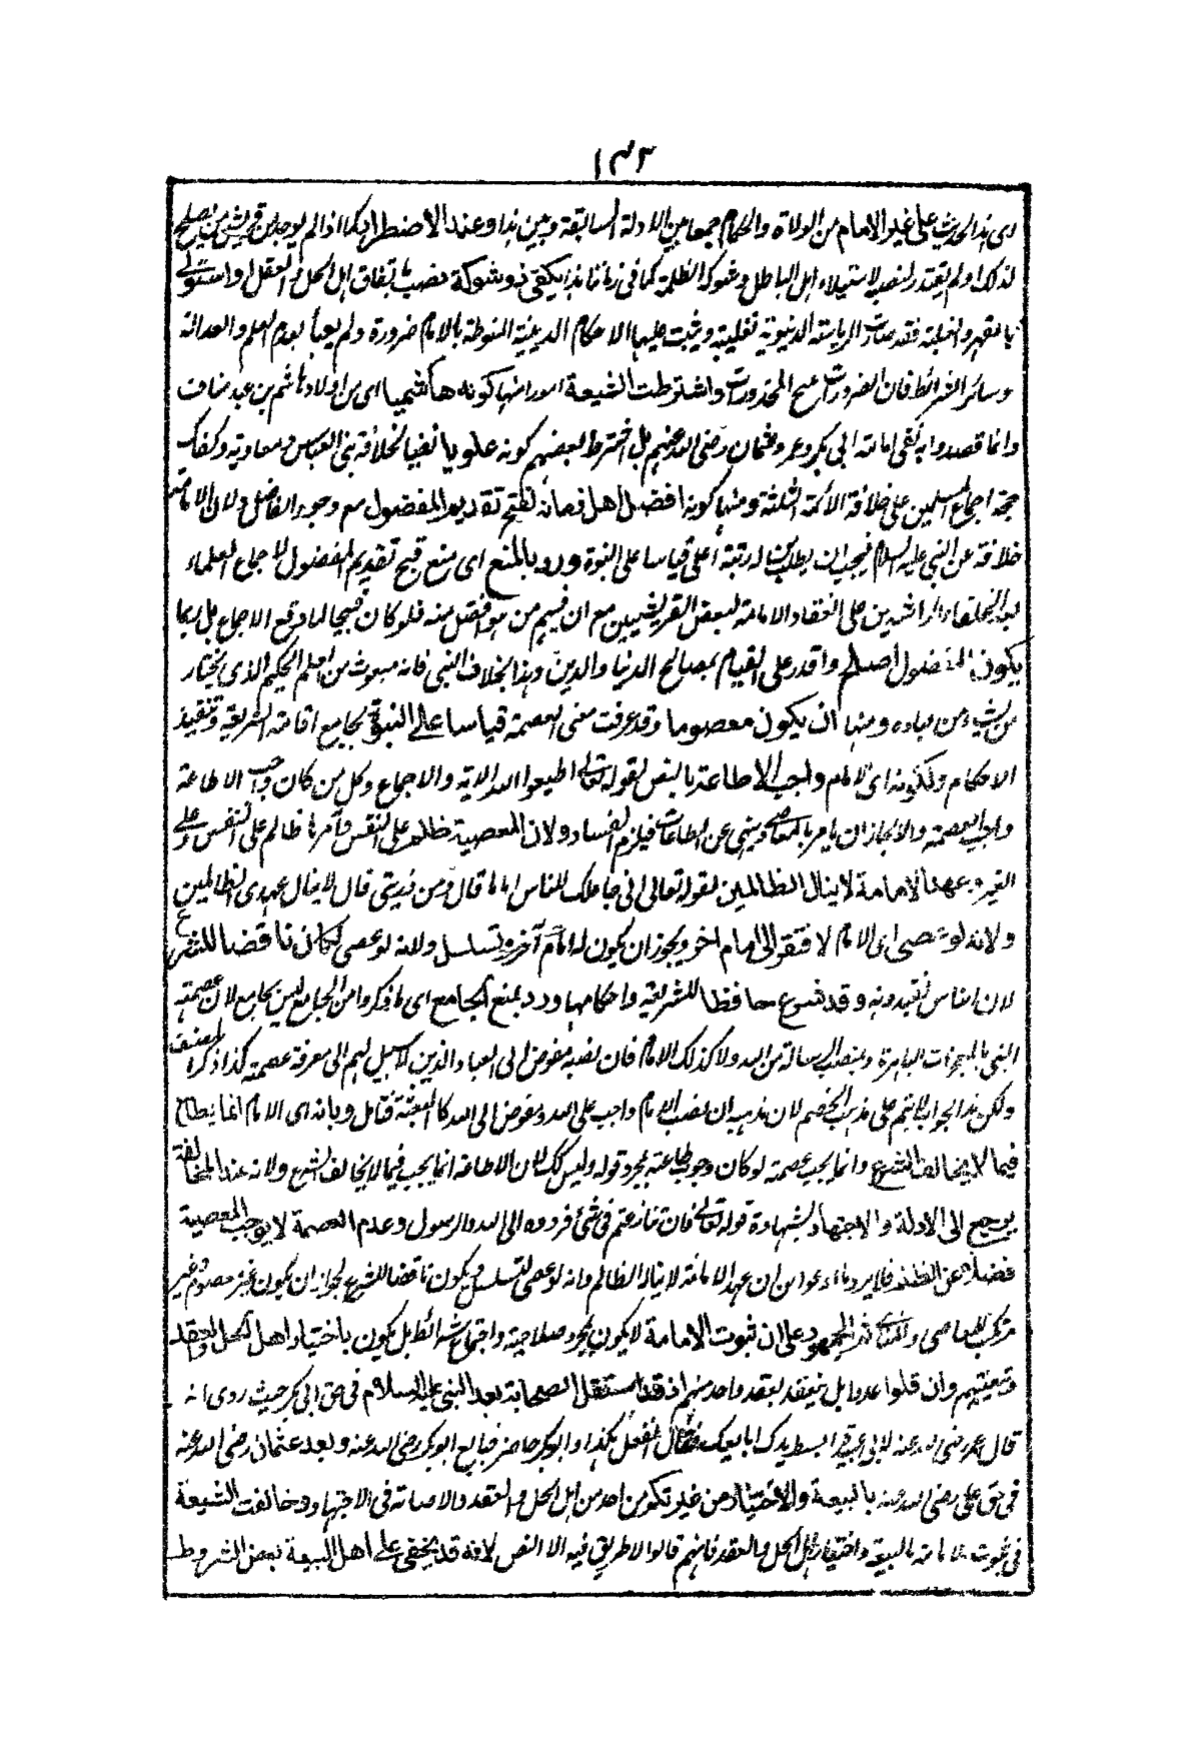 ١٣٢
اى هذا الحديث على غير الامام من الولاة والحكام جمعا بين الادلة السابقة وبين هذا وعند الاضطرار كما اذا لم يوجد من قريش من يصلح
لذلك او لم يقتدر لنصبه لاستيلاء اهل الباطل وشوكة الظلمة كما فى زماننا هذا يكفى ذو شوكة نصب باتفاق اهل الحل والعقل او استولى
بالقهر والغلبة فقد صارت الرياسة الدنيوية تغلبية ويثبت عليها الاحكام الدينية المنوطة بالامام ضرورة ولم يعبأ بعدم العلم والعدالة
وسائر الشرائط فان الضرورات تبيح المحذورات واشترطت الشيعة امورا منها كونه هاشميا اى من اولاد هاشم بن عبد مناف
وانما قصدوا به نفى امامة ابى بكر وعمر وعثمان رضى الله عنهم بل اشترط بعضهم كونه علويا نفيا لخلافة بنى العباس ومعاوية وكفاك
حجة اجماع المسلمين على خلافة الائمة الثلثة ومنها كونه افضل اهل زمانه لقبح تقديم المفضول مع وجود الفاضل ولان الامامة
خلافة عن النبى عليه السلام فيجب ان يطلب من له رتبة اعلى قياسا على النبوة ورد بالمنع اى منع قبح تقديم المفضول لاجماع العلماء
بعد الخلفاء الراشدين على انعقاد الامامة لبعض القريشيين مع ان فيهم من هو افضل منه فلو كان قبيحا لما وقع الاجماع بل ربما
يكون المفضول اصلح واقدر على القيام بمصالح الدنيا والدين وهذا بخلاف النبى فانه مبعوث من العلم الحكيم الذى يختار
من يشاء من عباده ومنها ان يكون معصوما وقد عرفت معنى العصمة قياسا على النبوة بجامع اقامة الشريعة وتنفيذ
الاحكام ولكونه اى الامام واجب الاطاعة بالنص لقوله تعالى اطيعوا الله الاية والاجماع وكل من كان واجب الاطاعة
واجب العصمة والا لجاز ان يامر بالمعاصى وينهى عن الطاعات فيلزم الفساد ولان المعصية ظلم على النفس وآمرها ظالم على النفس وعلى
الغير وعهد الامامة لا ينال الظالمين لقوله تعالى انى جاعلك للناس اماما قال ومن ذريتى قال لا ينال عهدى الظالمين
ولانه لو عصى اى الامام لافتقر الى امام آخر ويجوز ان يكون له امام آخر وتسلسل ولانه لو عصى لكان ناقضا للشرع
لان الناس يقتدونه وقد شرع حافظا للشريعة واحكامها ورد بمنع الجامع اى ما ذكروا من الجامع ليس بجامع لان عصمة
النبى بالمعجزات الباهرة ومنصب الرسالة من الله ولا كذلك الامام فان نصبه مفوض الى العباد الذين لا سبيل لهم الى معرفة عصمته كذا ذكر المصنف
ولكن هذا الجواب لا يتم على مذهب الخصم لان مذهبه ان نصب الامام واجب على الله ومفوض الى الله كالبعثة فتامل وبانه اى الامام انما يطاع
فيما لا يخالف الشرع وانما يجب عصمته لو كان وجوب طاعته بمجرد قوله وليس كذلك لان الاطاعة انما يجب فيما لا يخالف الشرع ولانه عند المخالفة
يرجع الى الادلة والاجتهاد بشهادة قوله تعالى فان تنازعتم فى شئ فردوه الى الله والرسول وعدم العصمة لا يوجب المعصية
فضلا عن الظلم فلا يرد ما ادعوا من ان عهد الامامة لا ينال الظالم وانه لو عصى لتسلسل ويكون ناقضا للشرع لجواز ان يكون غير معصوم وغير
مرتكب المعاصى والذى عليه الجمهور على ان ثبوت الامامة لا يكون بمجرد صلاحيته واجتماع شرائطه بل يكون باختيار اهل الحل والعقد
وتعيينهم وان قلوا عددا بل ينعقد بعقد واحد منهم اذ قد استقل الصحابة بعد النبى عليه السلام فى حق ابى بكر حيث روى انه
قال عمر رضى الله عنه لابى عبيدة ابسط يدك ابايعك فقال اتفعل هكذا وابو بكر حاضر فبايع ابو بكر رضى الله عنه وبعد عثمان رضى الله عنه
فى حق على رضى الله عنه بالبيعة والاختيار من غير تكون احد من اهل الحل والعقد والاصابة فى الاجتهاد وخالفت الشيعة
فى ثبوت الامامة بالبيعة واختيار اهل الحل والعقد فانهم قالوا لا طريق فيه الا النص لانه قد يخفى على اهل البيعة بعض الشروط